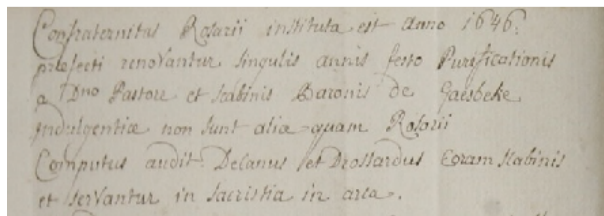 Confraternitas Rosarii instituta est Anno 1646.
præfecti renovantur singulis annis festo Purificationis
a Dno Pastore et scabinis Baronis de Gaesbeke
Indulgentiæ non sunt aliæ quam Rosarii
Computus audit. Decanus et Drossardus coram scabinis
et servantur in sacristia in arca.